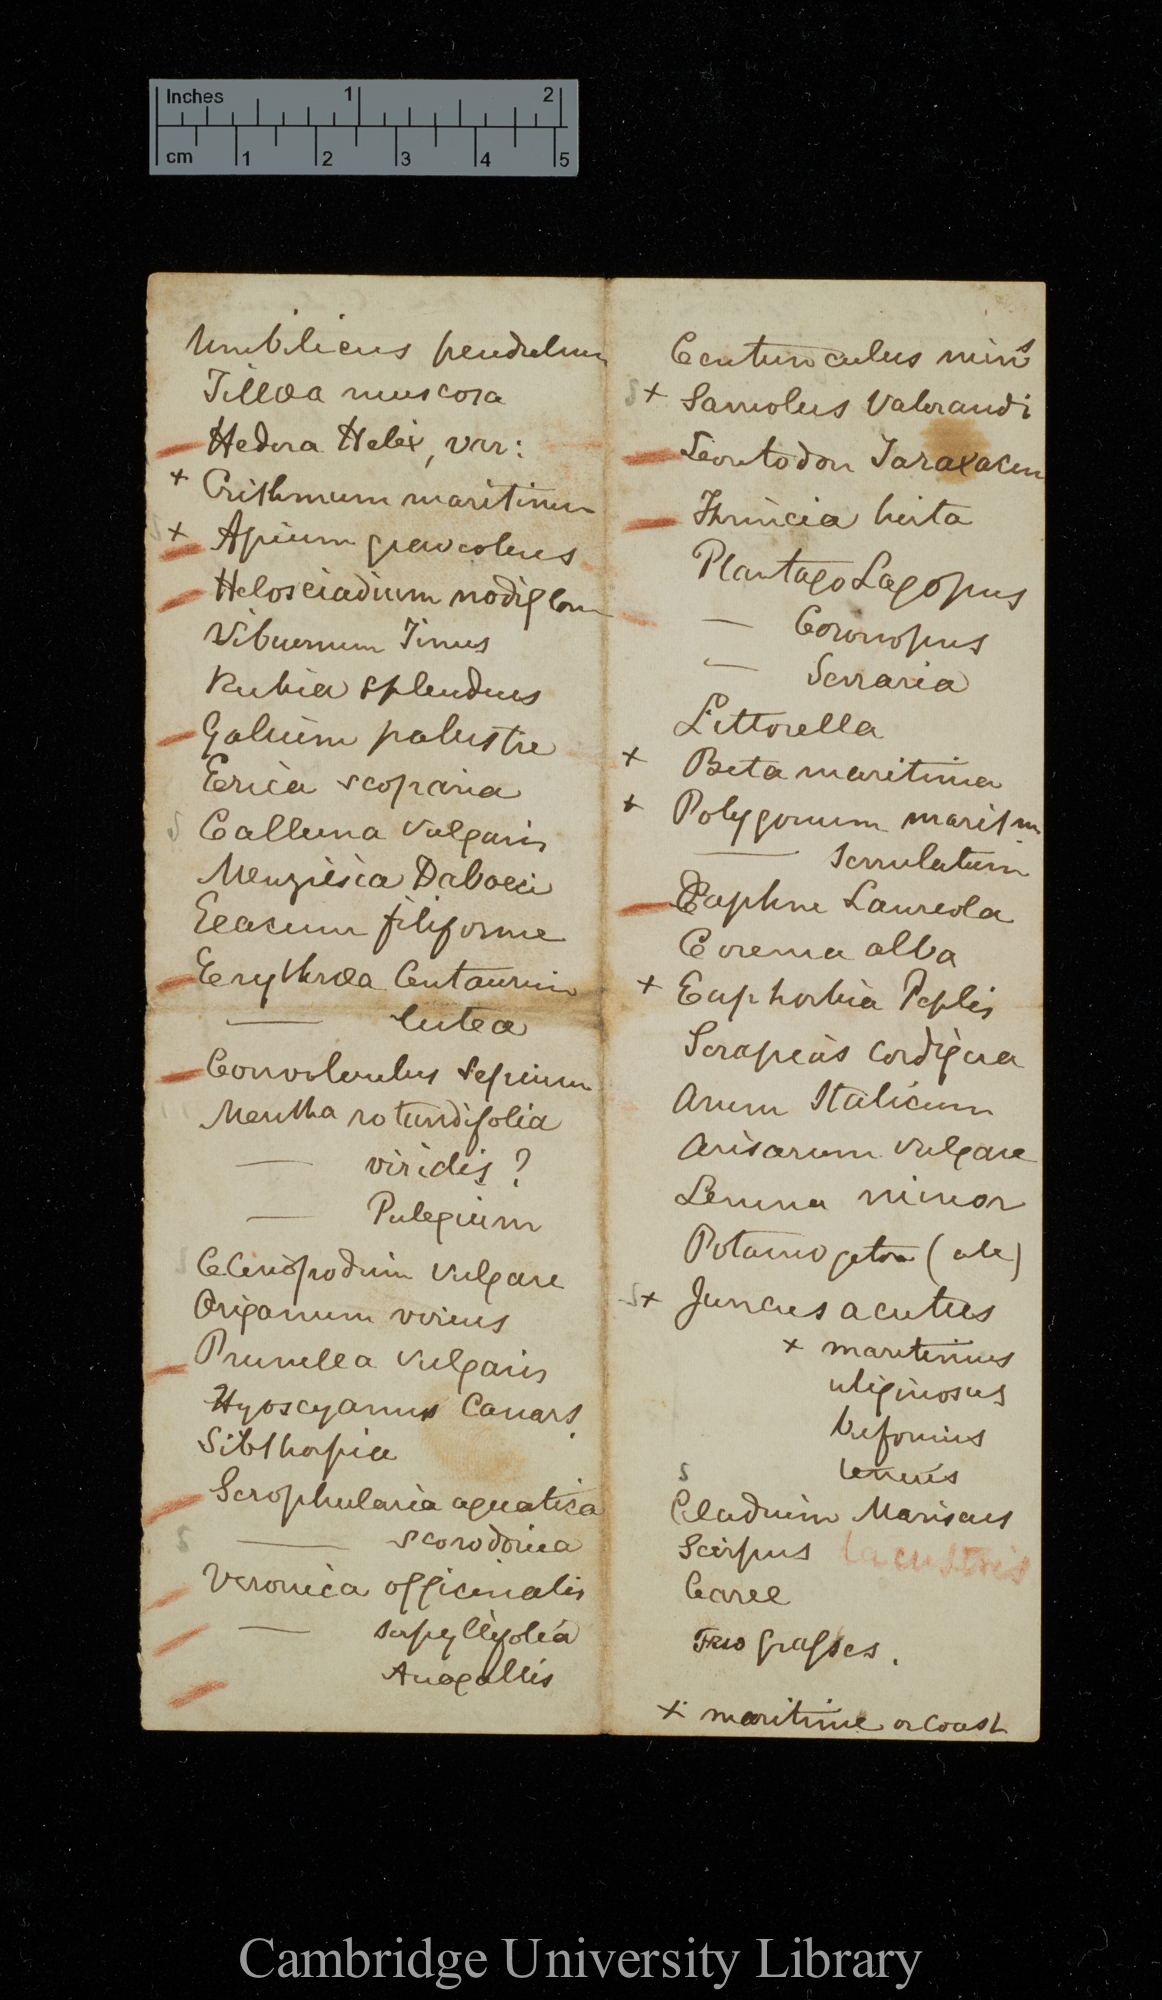 Inches 1 2
cm 1 2 3 4 5
Umbilicus pendulum
Tillœa muscosa
Hedera Helix, var:
+ Crithmum maritimum
+ Apium graveolens
Helosciadium nodiflorum
Viburnum Tinus
Rubia splendens
Galium palustre
Erica scoparia
Calluna vulgaris
Menziesia Daboeci
Exacum filiforme
Erythræa Centaurium
— lutea
Convolvulus sepium
Mentha rotundifolia
— viridis ?
— Pulegium
Clinopodium vulgare
Origanum virens
Prunella vulgaris
Hyoscyamus Canars.
Sibthorpia
Scrophularia aquatica
— scorodonia
Veronica officinalis
— serpyllifolia
Anagallis
Centunculus mins
+ Samolus Valerandi
Leontodon Taraxacum
Thrincia hirta
Plantago Lagopus
— Coronopus
— Serraria
Littorella
+ Beta maritima
+ Polygonum maritm
— serrulatum
Daphne Laureola
Corema alba
+ Euphorbia Peplis
Serapias cordigera
Arum Italicum
Arisarum vulgare
Lemna minor
Potamogeton
+ Juncus acutus
+ maritimus
uliginosus
bufonius
tenuis
Cladium Mariscus
Scirpus lacustris
Carex
Two grasses.
+ maritime or coast
Cambridge University Library